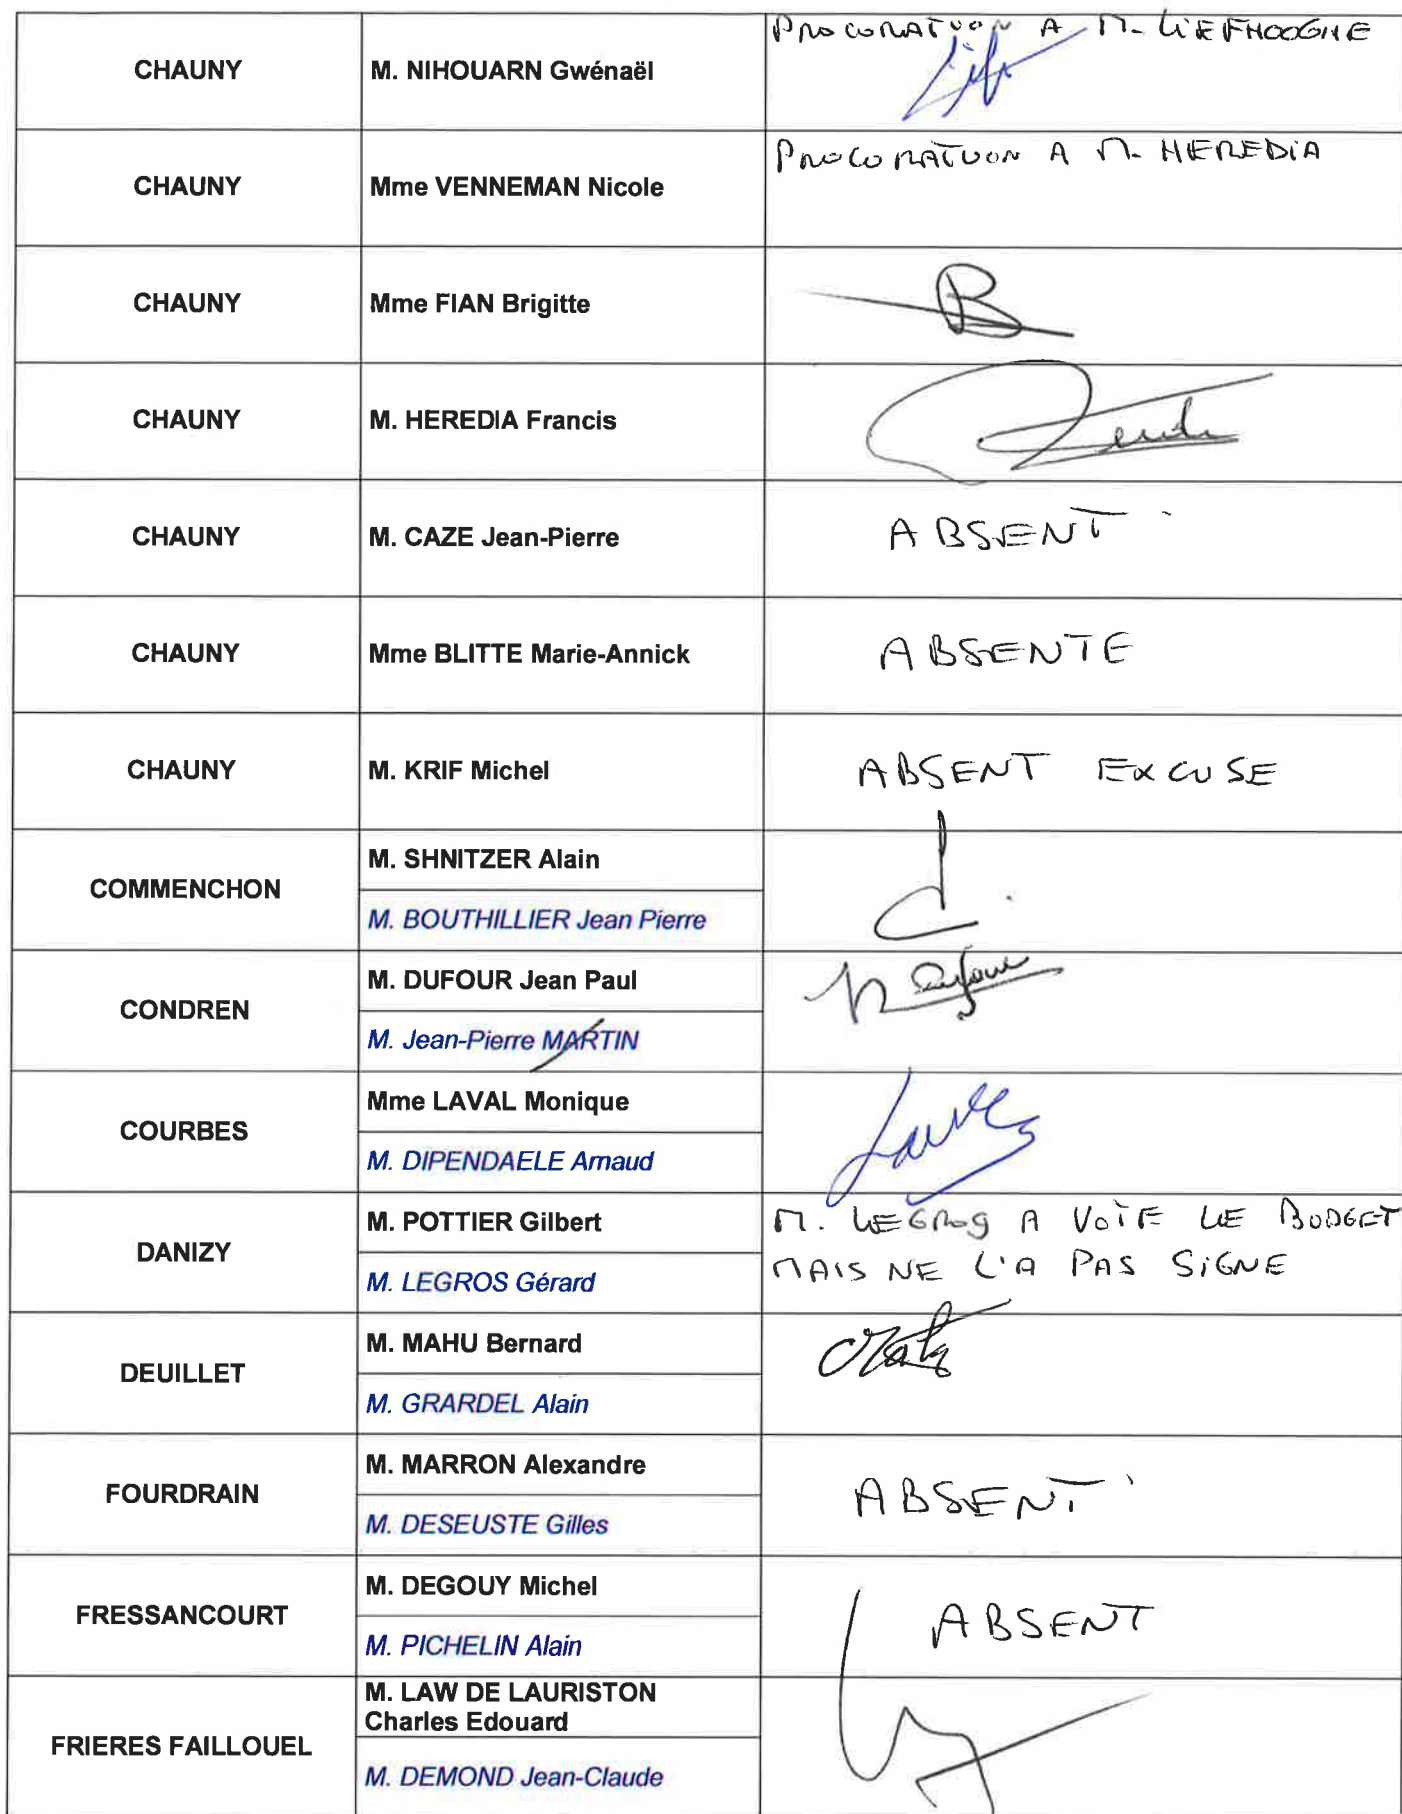 PROCURATION A M. LIEFHOOGHE
CHAUNY M. NIHOUARN Gwénaël
PROCURATION A M. HEREDIA
CHAUNY Mme VENNEMAN Nicole
CHAUNY Mme FIAN Brigitte B
CHAUNY M. HEREDIA Francis
CHAUNY M. CAZE Jean-Pierre ABSENT
CHAUNY Mme BLITTE Marie-Annick ABSENTE
CHAUNY M. KRIF Michel ABSENT EXCUSE
COMMENCHON M. SHNITZER Alain
M. BOUTHILLIER Jean Pierre
CONDREN M. DUFOUR Jean Paul Dufour
M. Jean-Pierre MARTIN
COURBES Mme LAVAL Monique
M. DIPENDAELE Arnaud
DANIZY M. POTTIER Gilbert M. LEGROS A VOTE LE BUDGET
M. LEGROS Gérard MAIS NE L'A PAS SIGNE
DEUILLET M. MAHU Bernard
M. GRARDEL Alain
FOURDRAIN M. MARRON Alexandre ABSENT
M. DESEUSTE Gilles
FRESSANCOURT M. DEGOUY Michel ABSENT
M. PICHELIN Alain
FRIERES FAILLOUEL M. LAW DE LAURISTON
Charles Edouard
M. DEMOND Jean-Claude